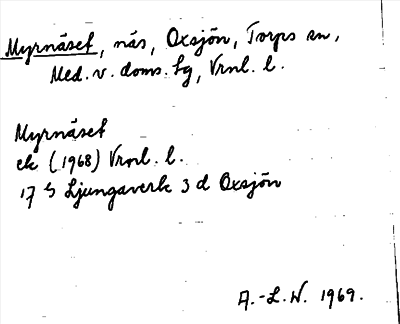 Myrnäset, näs, Oxsjön, Torps sn,
Med. v. doms. tg, Vrnl. l.
Myrnäset
ek (1968) Vrnl. l.
17 G Ljungaverk 3 d Oxsjön
A.-L. W. 1969.